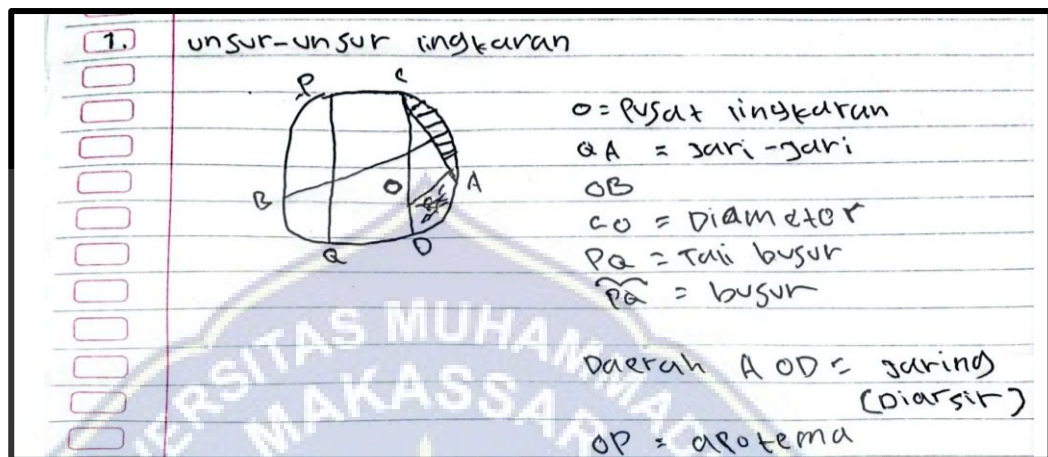 1. unsur-unsur lingkaran
P C
O = Pusat lingkaran
QA = Jari-jari
O A
OB
B
CO = Diameter
PQ = Tali busur
Q D
PQ = busur
Daerah AOD = Jaring
(Diarsir)
OP = apotema
UNIVERSITAS MUHAMMAD
MAKASSAR